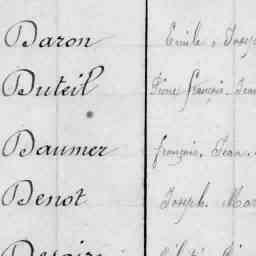 Daron Emile, Josep
Duteil Pierre françois, Jean
Daumer françois, Jean.
Denot Joseph. Mar